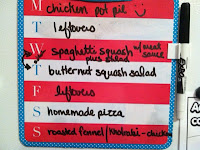 M chicken pot pie
T leftovers
W spaghetti squash w/ meat sauce
plus salad
T butternut squash salad
F leftovers
S homemade pizza
S roasted fennel/Kholrabi-chicken